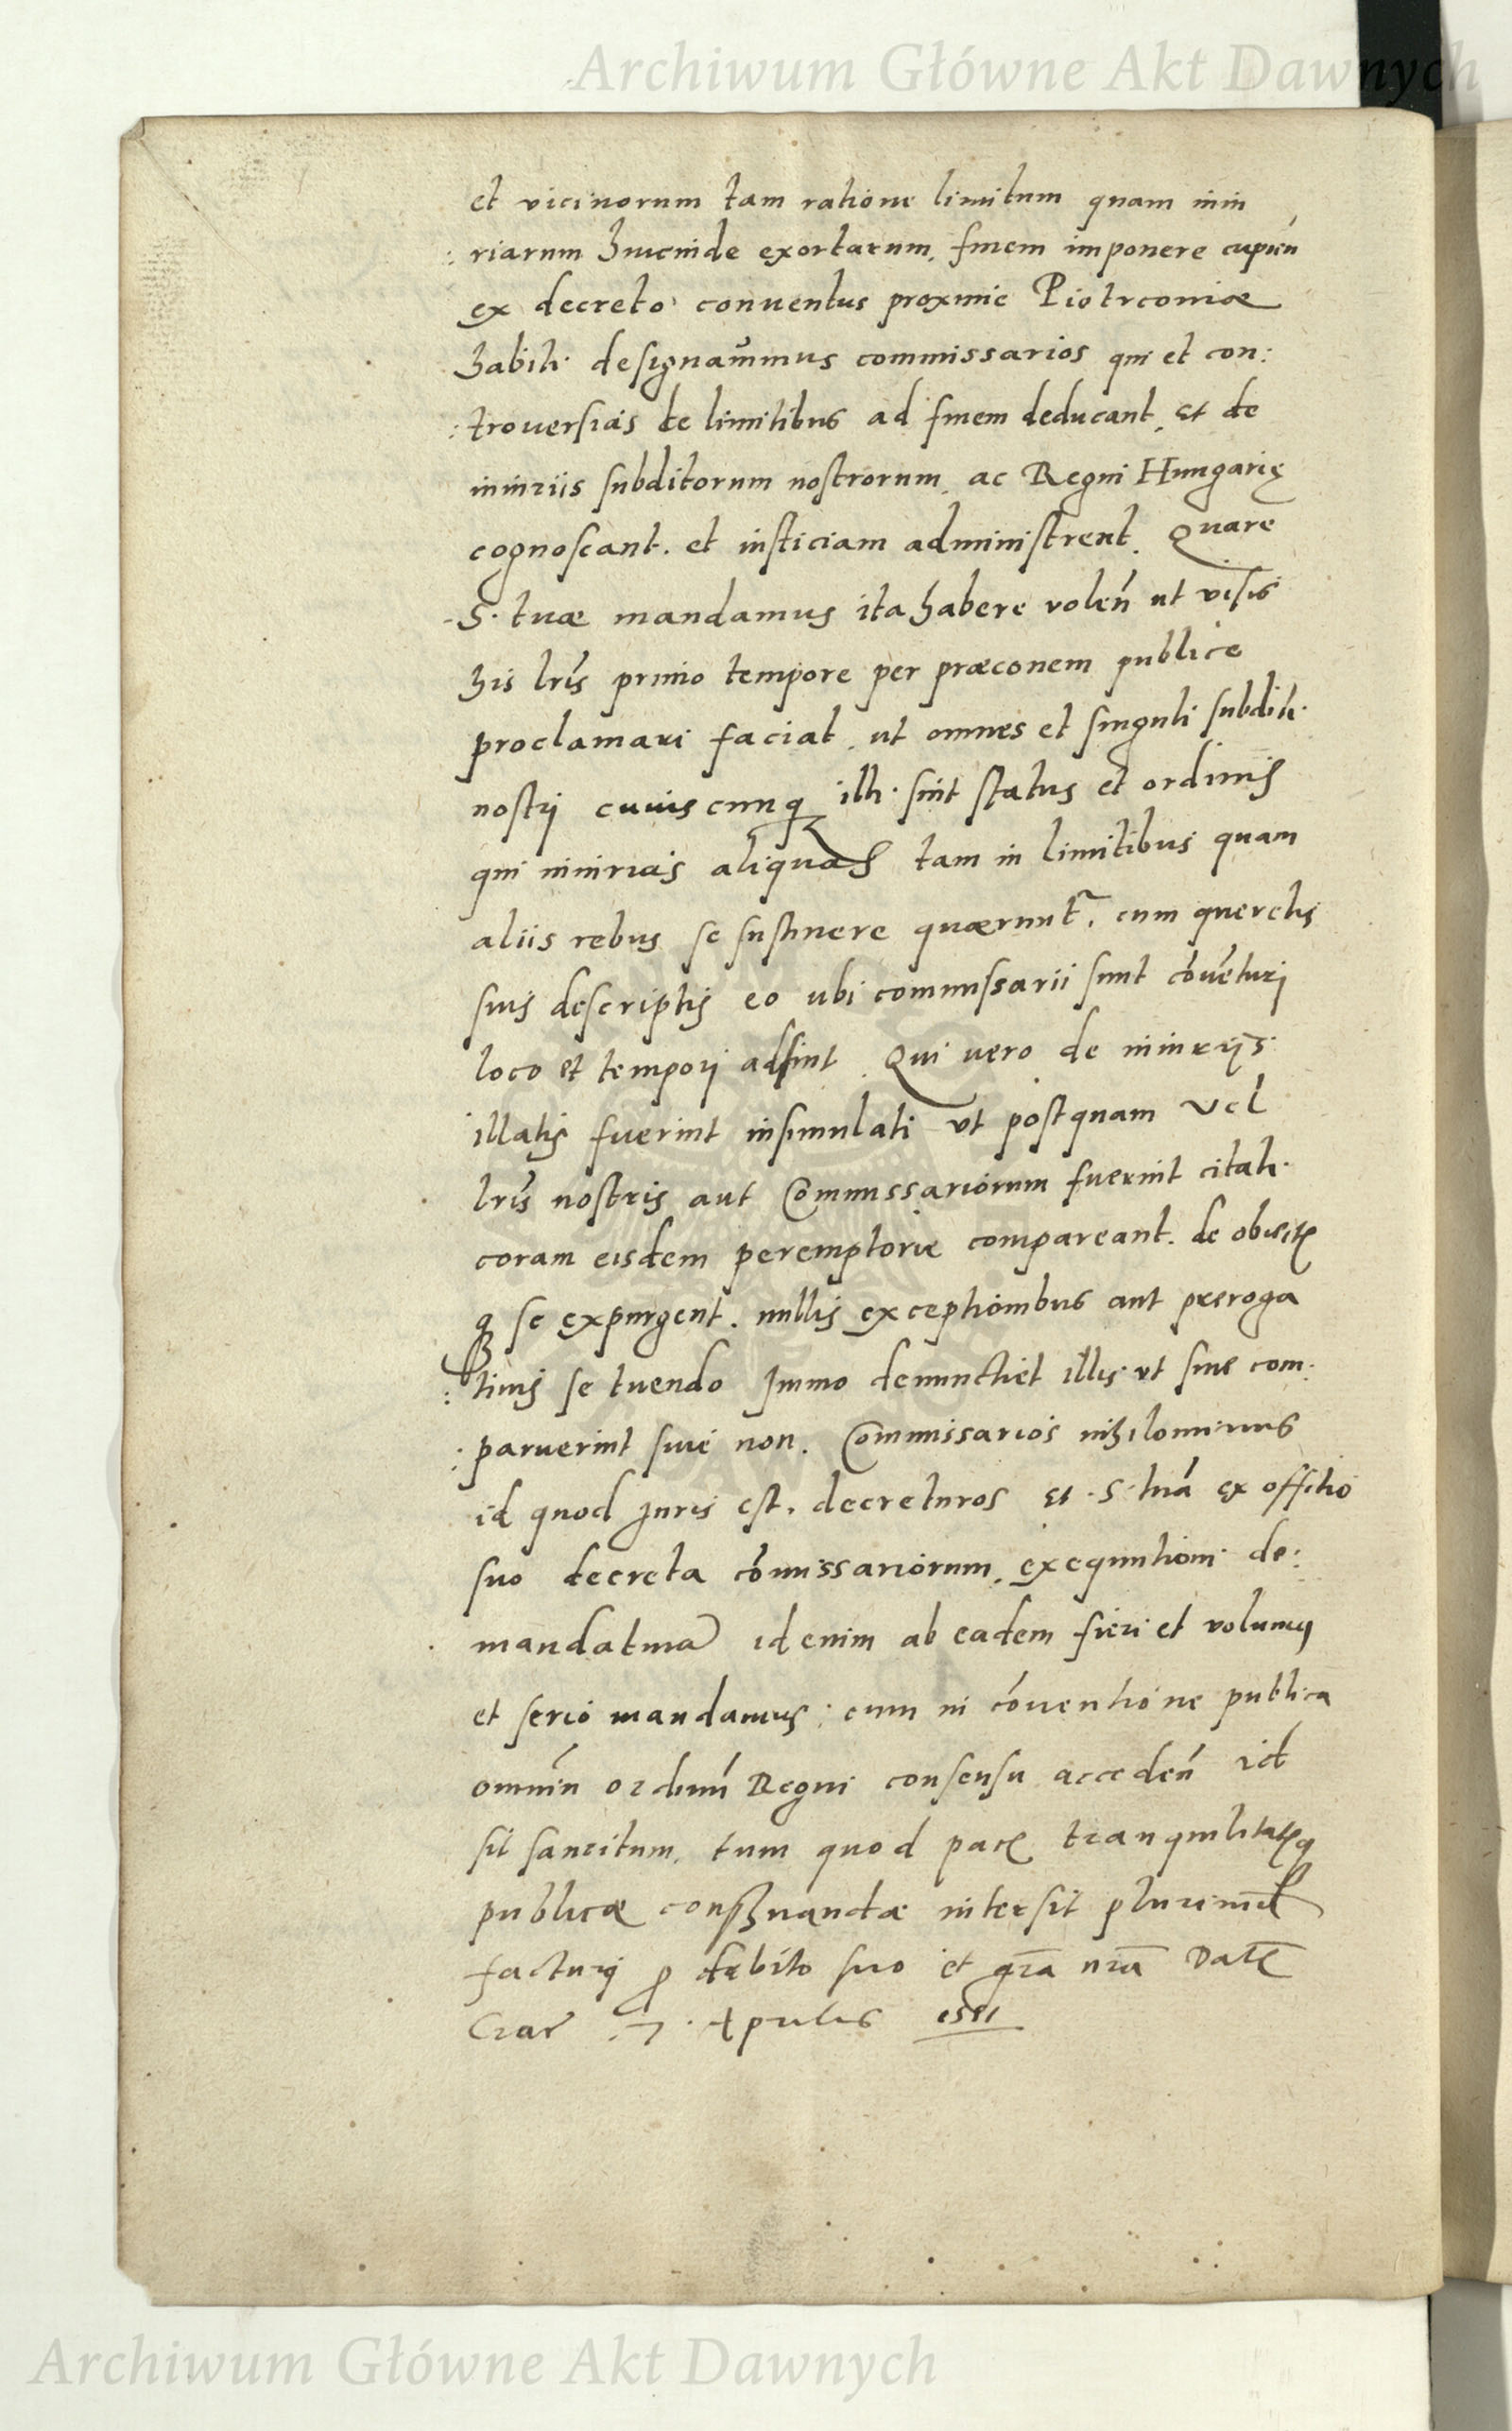 Archiwum Główne Akt Dawnych
et vicinorum tam ratione limitum quam iniu
: riarum hincinde exortarum, finem imponere cupień
ex decreto conventus proxime Piotrcoviae
habiti designavimus commissarios qui et con:
: troversias de limitibus ad finem deducant, et de
iniuriis subditorum nostrorum, ac Regni Hungarię
cognoscant. et iusticiam administrent. Quare
S. tuae mandamus ita habere voleń ut visis
his lrīs primo tempore per praeconem publice
proclamari faciat, ut omnes et singuli subditi
nostri cuiuscunq illi sint status et ordinis
qui iniurias aliquas tam in limitibus quam
aliis rebus se sustinere quaerunt̃, cum querelis
suis descriptis eo ubi commissarii sunt cōvēturi
loco et tempori adsint. Qui vero de iniurijs
illatis fuerint insimulati ut postquam vel
lrīs nostris aut Commissariorum fuerint citati
coram eisdem peremptorie compareant. de obiectis
q se expurgent. nullis exceptionibus aut preroga
: tivis se tuendo Immo denunctiet illis ut sive com:
: paruerint sive non. Commissarios nihilominus
id quod Iuris est, decreturos et S. tuā ex offitio
suo decreta cōmissariorum, exequutioni de:
mandatura id enim ab eadem fieri et volumus
et serio mandamus: cum in cōventione publica
omniū ordinū Regni consensu accedeń id
sit sancitum, tum quod pacis tranquilitatisq
publicae conservandae intersit plurimū
facturus p debito suo et grā nrā Datę
Crac 7. Aprilis 1551
Archiwum Główne Akt Dawnych